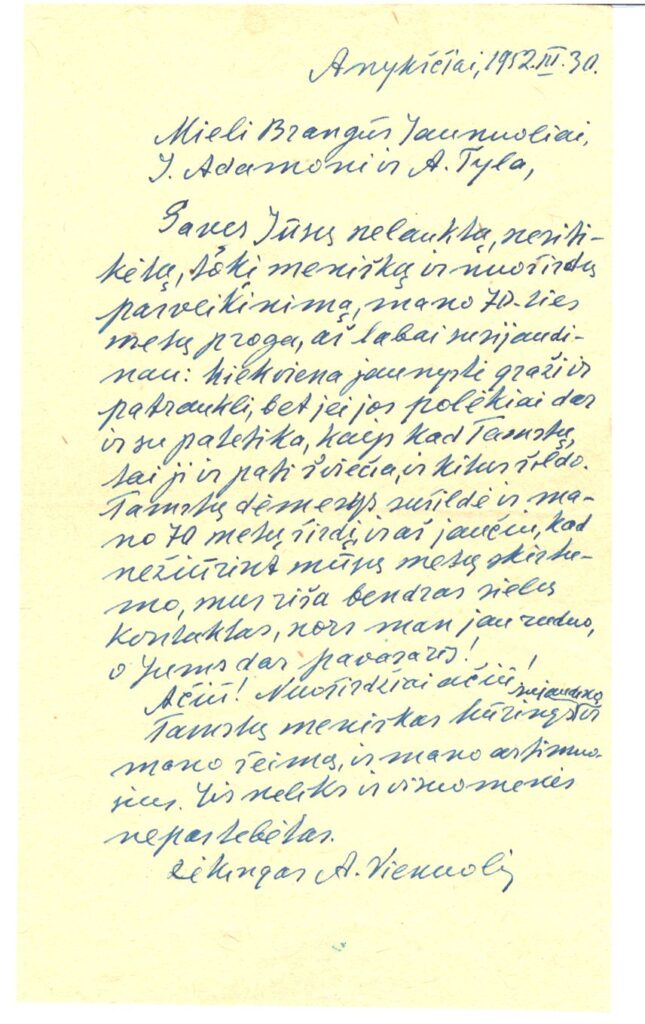 Anykščiai, 1952.III.30.
Mieli Brangūs Jaunuoliai,
J. Adamoni ir A. Tyla,
Gavęs Jūsų nelauktą, nesiti-
kėtą, tokį menišką ir nuoširdų
pasveikinimą, mano 70-ties
metų proga, aš labai susijaudi-
nau: kiekviena jaunystė graži ir
patraukli, bet jei jos polėkiai dar
ir su patetika, kaip kad Tamstų,
tai ji ir pati šviečia, ir kitus šildo.
Tamstų dėmesys sušildė ir ma-
no 70 metų širdį ir aš jaučiu, kad
nežiūrint mūsų metų skirtu-
mo, mus riša bendras sielų
kontaktas, nors man jau ruduo,
o Jums dar pavasaris!
Ačiū! Nuoširdžiai ačiū!
Tamstų meniškas kūrinys sujaudino ir
mano šeimą, ir mano artimuo-
sius. Jis neliks ir visuomenės
nepastebėtas.
Dėkingas A. Vienuolis